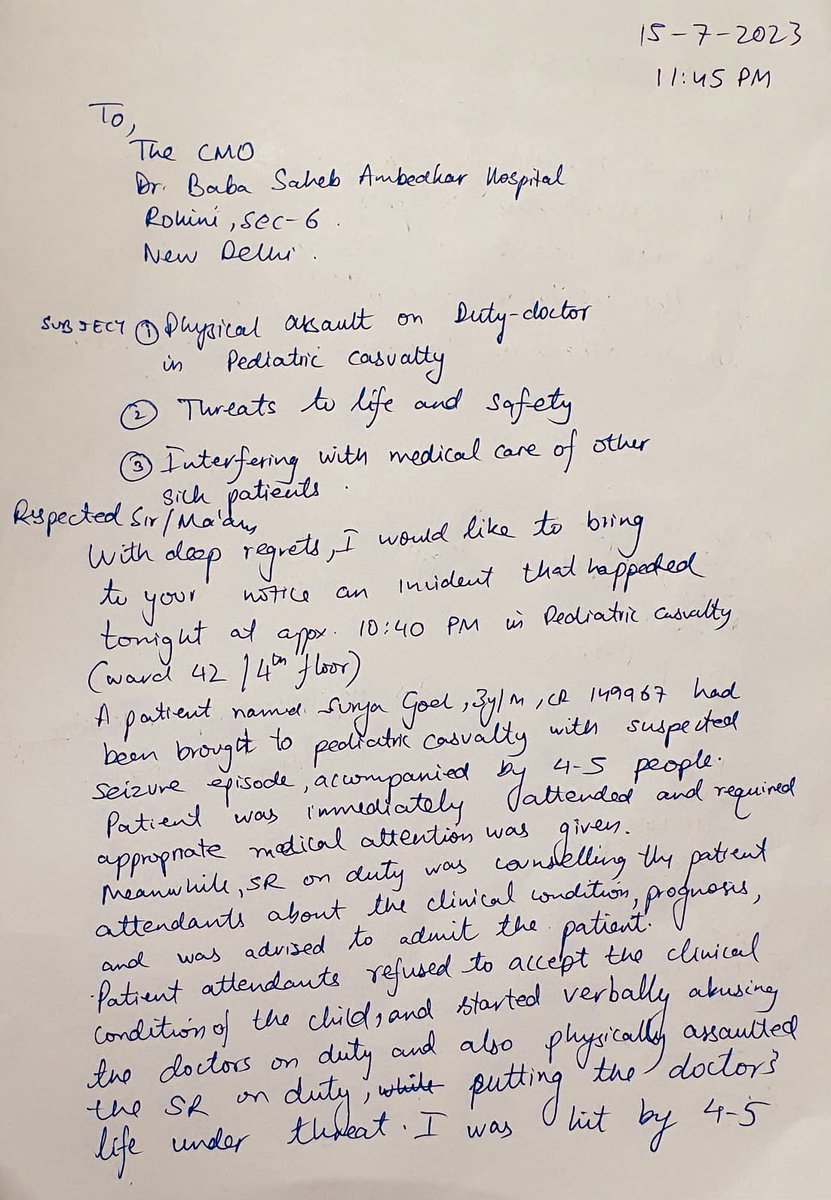 15-7-2023
11:45 PM
To,
The CMO
Dr. Baba Saheb Ambedkar Hospital
Rohini, sec-6.
New Delhi.
SUBJECT ① Physical assault on Duty-doctor
in Pediatric casualty
② Threats to life and safety
③ Interfering with medical care of other
sick patients.
Respected Sir/Ma'am,
With deep regrets, I would like to bring
to your notice an incident that happected
tonight at appx. 10:40 PM in Pediatric casualty
(ward 42 / 4th floor)
A patient named Surya Goel, 3y/M, CR 149967 had
been brought to pediatric casualty with suspected
seizure episode, accompanied by 4-5 people.
Patient was immediately attended and required
appropriate medical attention was given.
Meanwhile, SR on duty was counselling thy patient
attendants about the clinical condition, prognosis,
and was advised to admit the patient.
Patient attendants refused to accept the clinical
condition of the child, and started verbally abusing
the doctors on duty and also physically assaulted
the SR on duty, while putting the doctors
life under threat. I was hit by 4-5